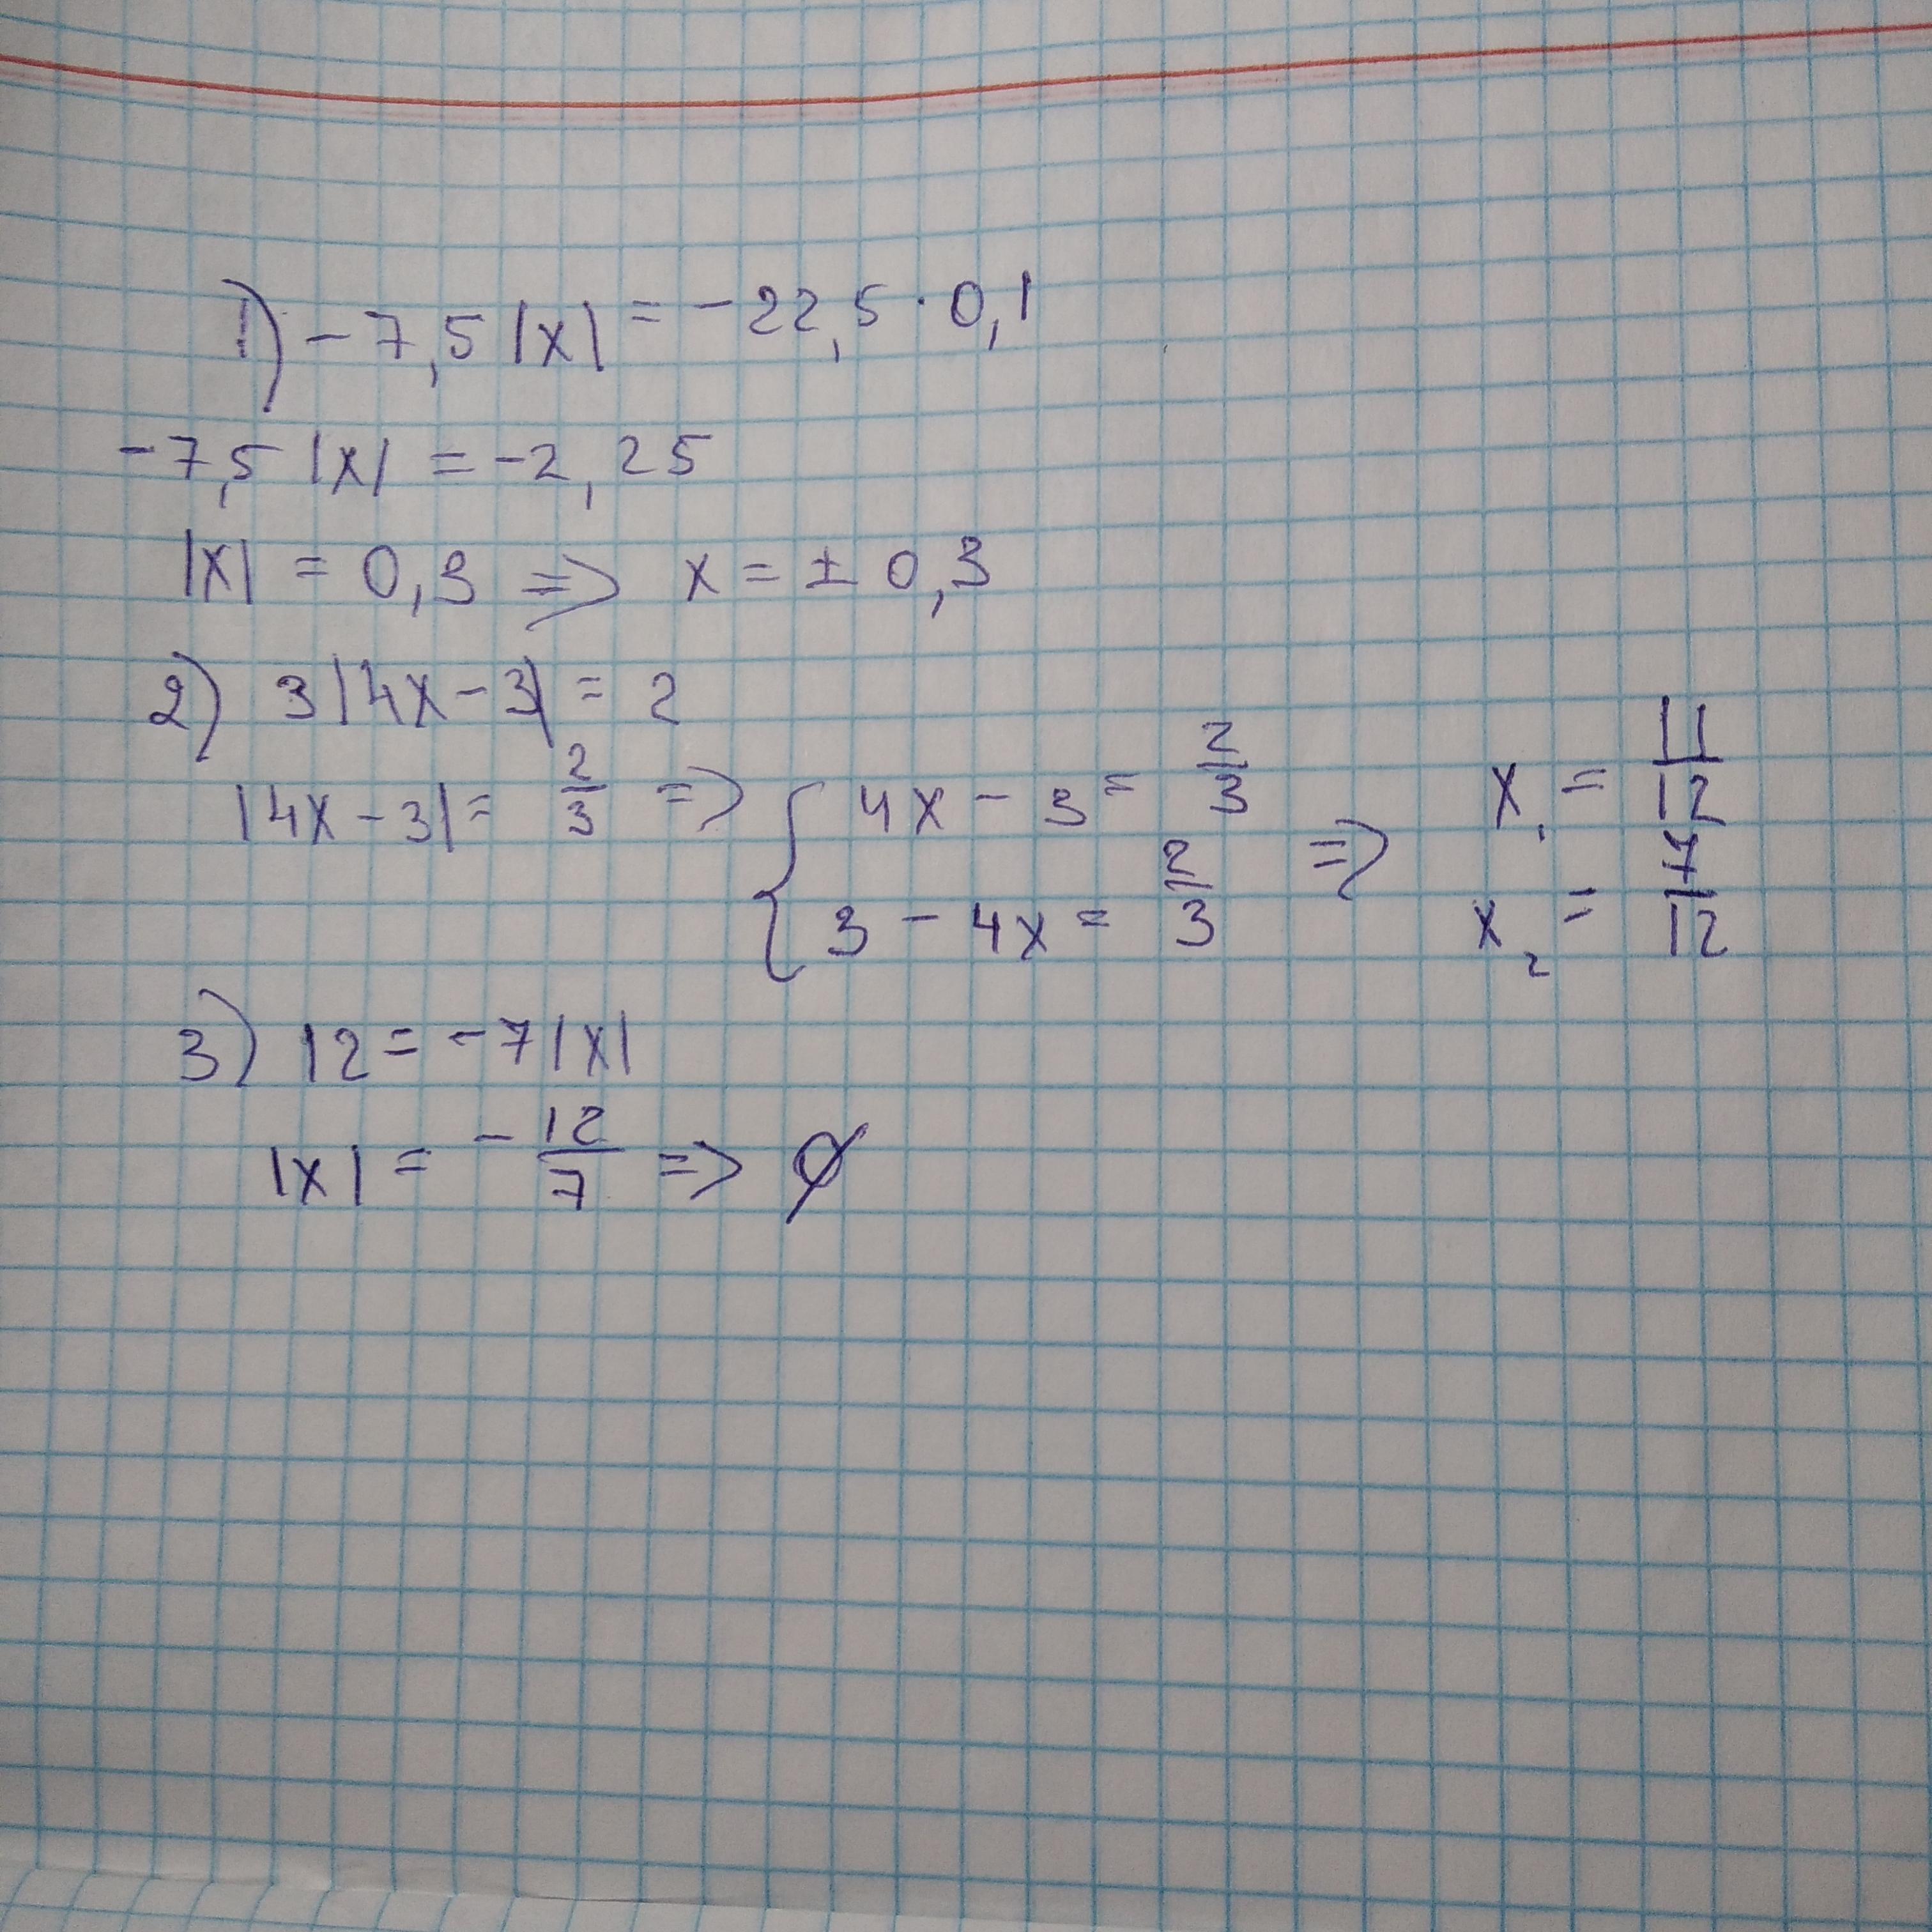 1) -7,5 |x| = -22,5 · 0,1
-7,5 |x| = -2,25
|x| = 0,3 => x = ± 0,3
2) 3|4x-3| = 2
|4x-3| = 2/3 => { 4x - 3 = 2/3 => x₁ = 11/12
3 - 4x = 2/3 x₂ = 7/12
3) 12 = -7|x|
|x| = -12/7 => ∅